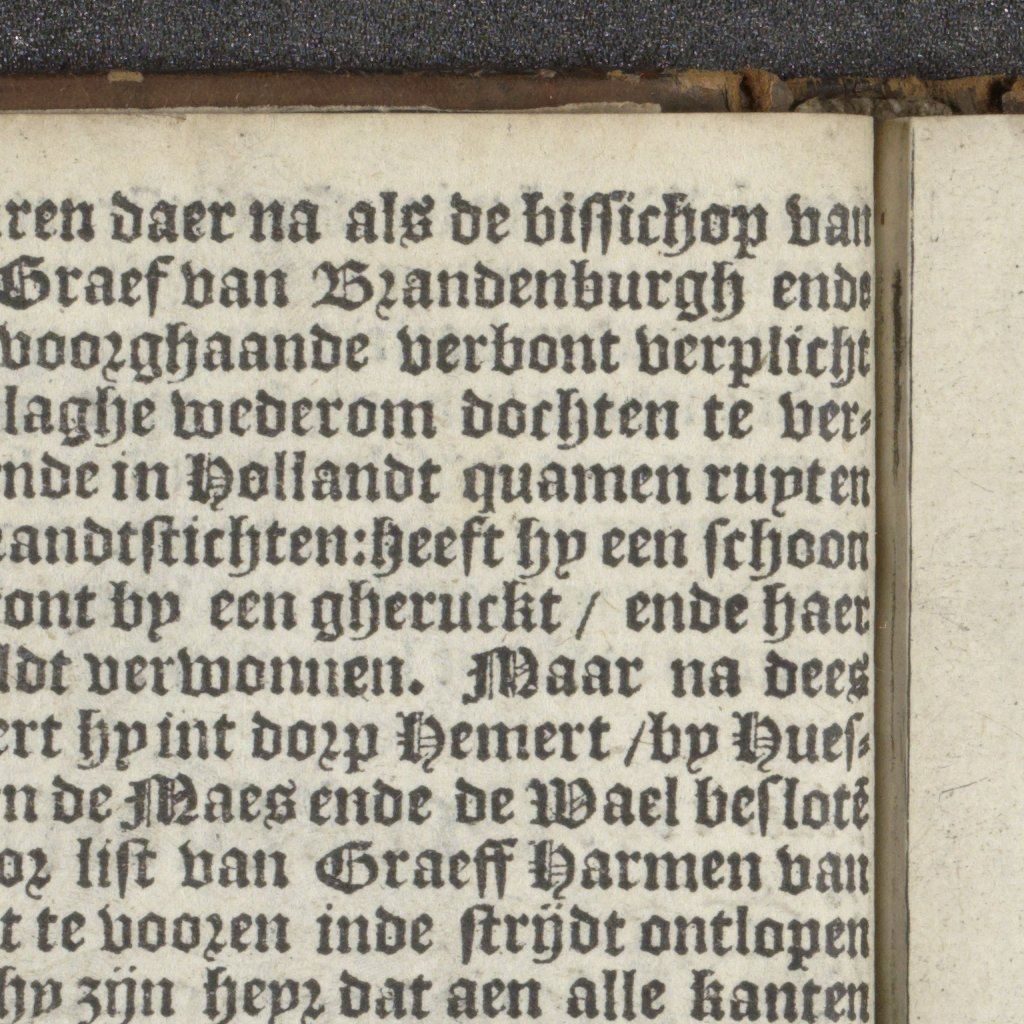 ren daer na als de bissichop van
Graef van Brandenburgh ende
voorghaande verbont verplicht
laghe wederom dochten te ver⸗
nde in Hollandt quamen ruyten
randtstichten: heeft hy een schoon
ont by een gheruckt / ende haer
ldt verwonnen. Maar na dees
ert hy int dorp Hemert / by Hues⸗
n de Maes ende de Wael beslotē
or list van Graeff Harmen van
t te vooren inde strijdt ontlopen
hy zijn heyr dat aen alle kanten